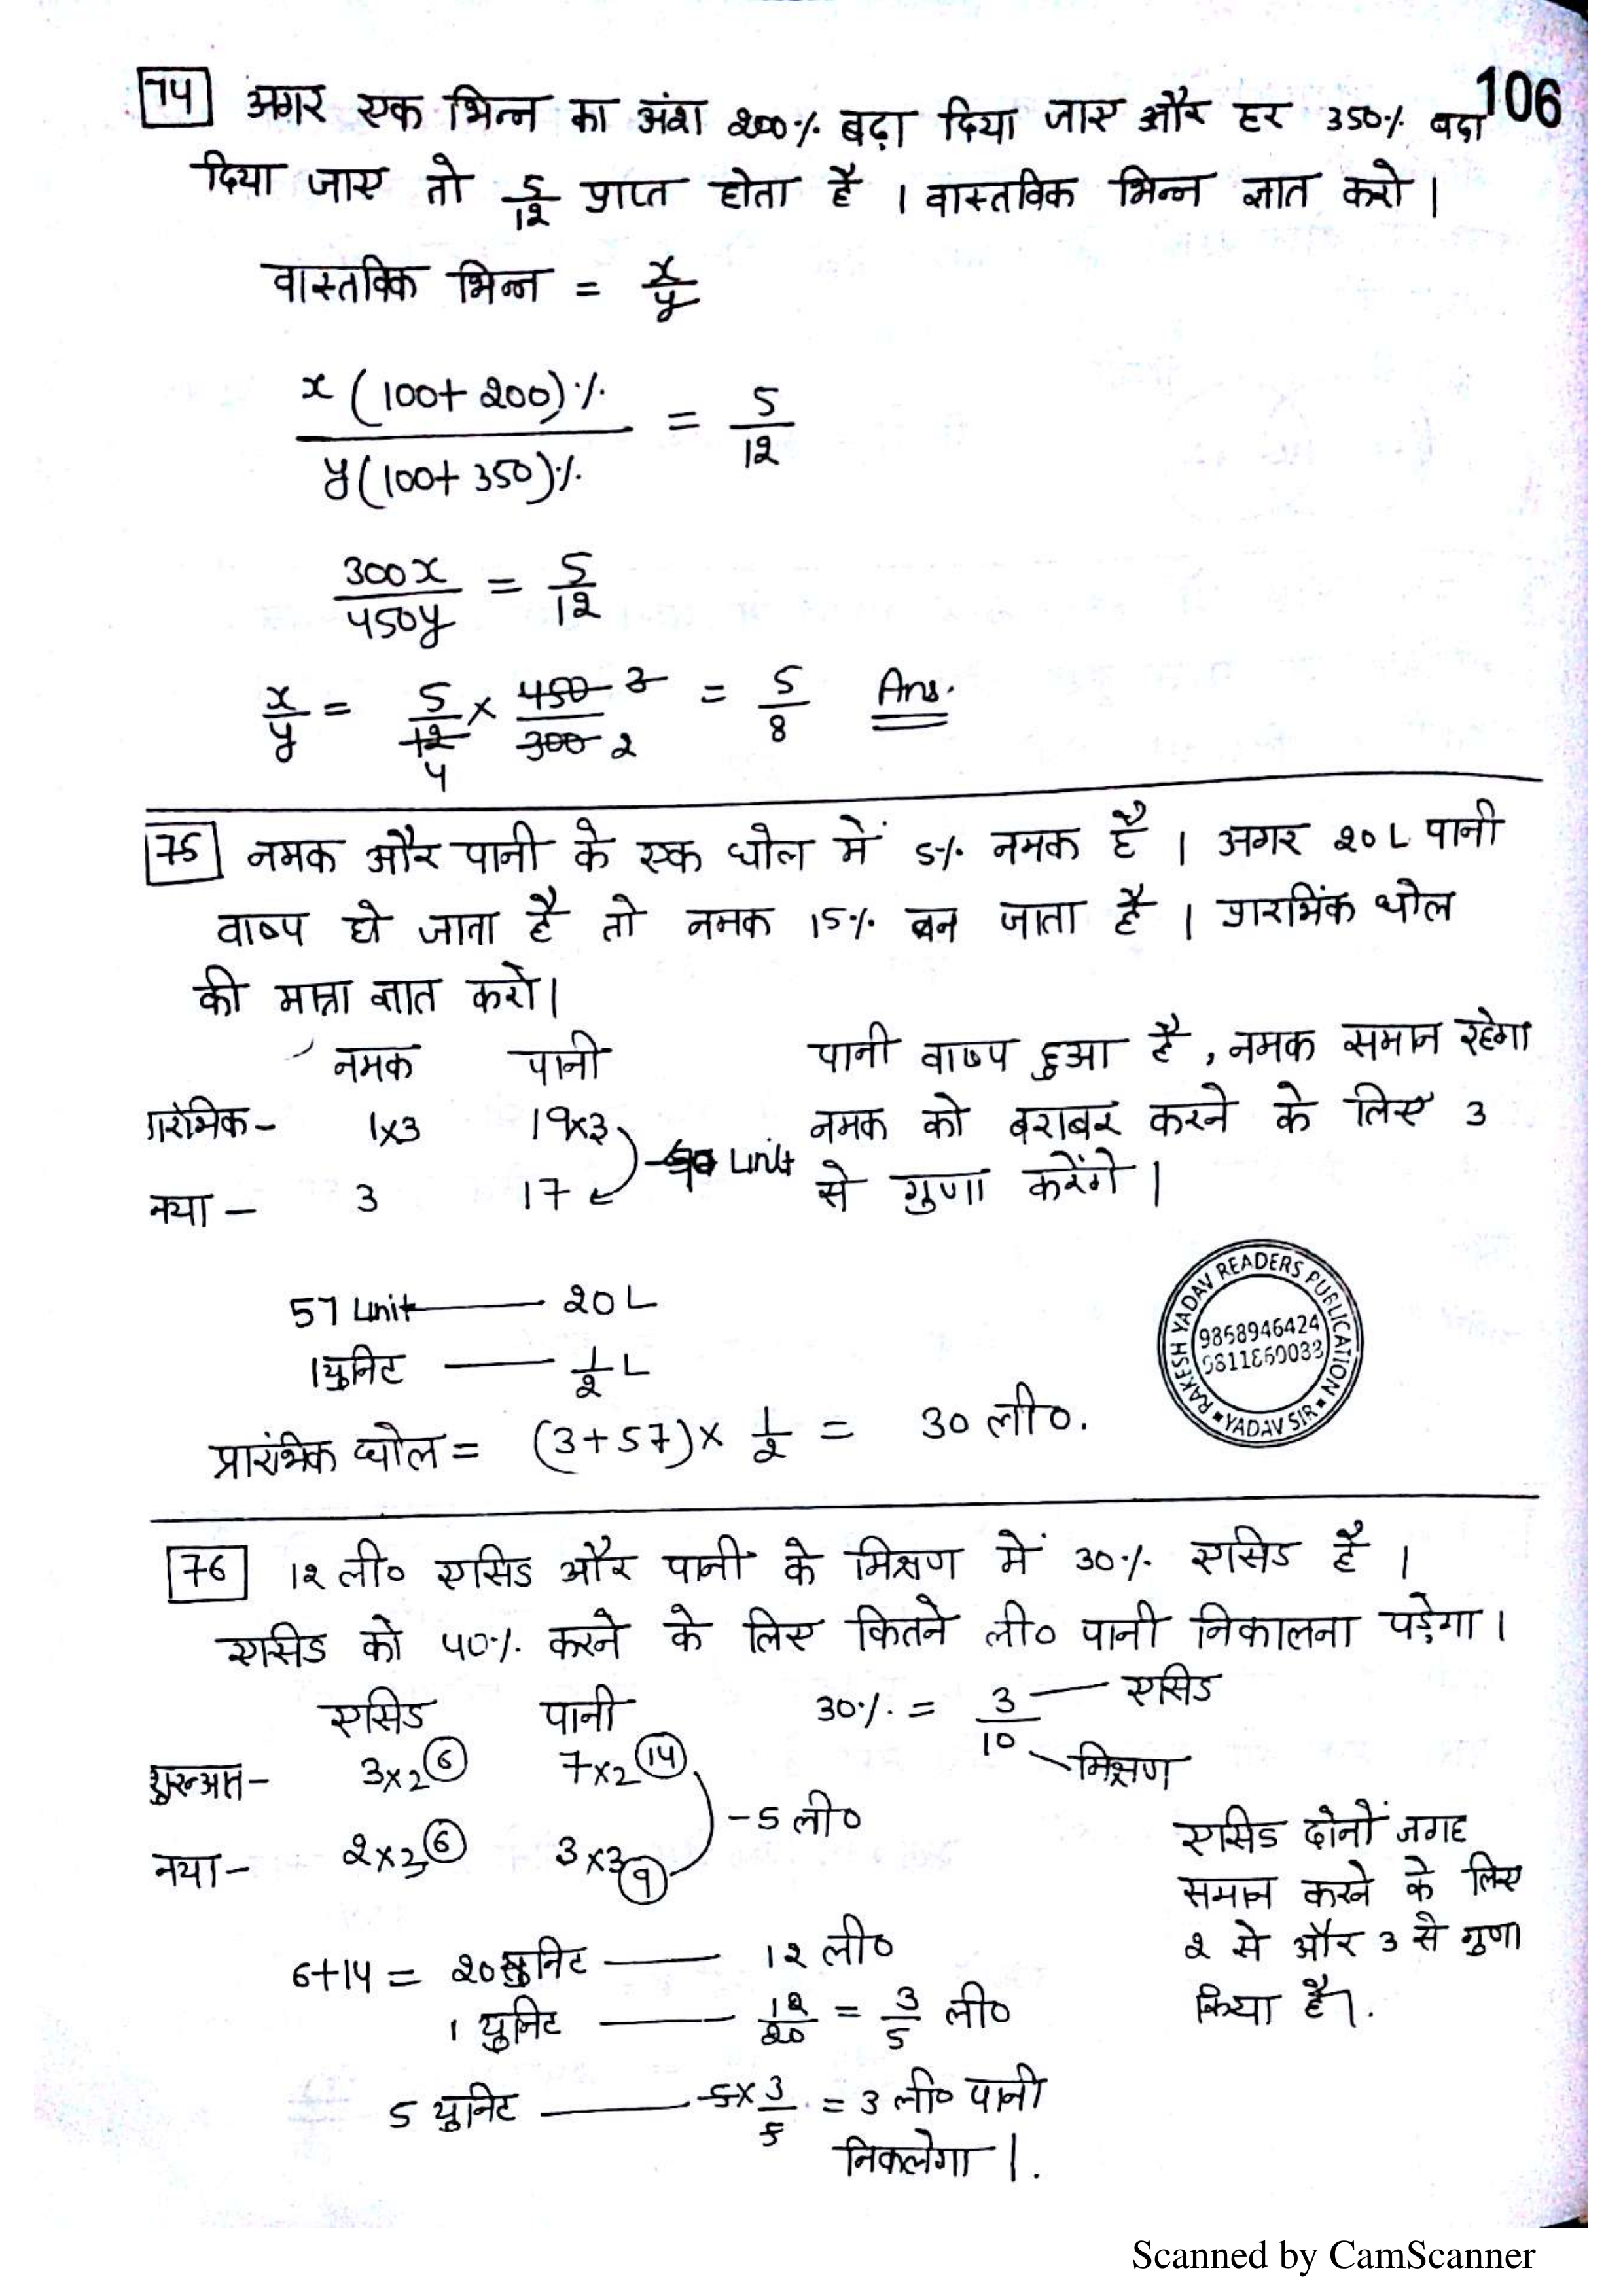 106
74 अगर एक भिन्न का अंश 200% बढ़ा दिया जाए और हर 350% बढ़ा
दिया जाए तो 5/12 प्राप्त होता है । वास्तविक भिन्न ज्ञात करो ।
वास्तविक भिन्न = x/y
x (100+200)% / y(100+350)% = 5/12
300x/450y = 5/12
x/y = 5/12 4 × 450 3/300 2 = 5/8 Ans.
75 नमक और पानी के एक घोल में 5% नमक है । अगर 20 L पानी
वाष्प हो जाता है तो नमक 15% बन जाता है । प्रारंभिक घोल
की मात्रा ज्ञात करो।
नमक पानी
प्रारंभिक- 1×3 19×3
नया - 3 17
Unit
पानी वाष्प हुआ है , नमक समान रहेगा
नमक को बराबर करने के लिए 3
से गुणा करेंगे ।
57 Unit — 20 L
1 युनिट — 1/2 L
प्रारंभिक घोल = (3+57)× 1/2 = 30 ली०.
RAKESH YADAV READERS PUBLICATION
9868946424
9811860033
YADAV SIR
76 12 ली० एसिड और पानी के मिश्रण में 30% एसिड है ।
एसिड को 40% करने के लिए कितने ली० पानी निकालना पड़ेगा ।
एसिड पानी
शुरुआत- 3×2 6 7×2 14
नया - 2×3 6 3×3 9
-5 ली०
30% = 3/10 — एसिड
मिश्रण
एसिड दोनों जगह
समान करने के लिए
2 से और 3 से गुणा
किया है।.
6+14 = 20 युनिट — 12 ली०
1 युनिट — 12/20 = 3/5 ली०
5 युनिट — 5×3/5 = 3 ली० पानी
निकलेगा ।.
Scanned by CamScanner